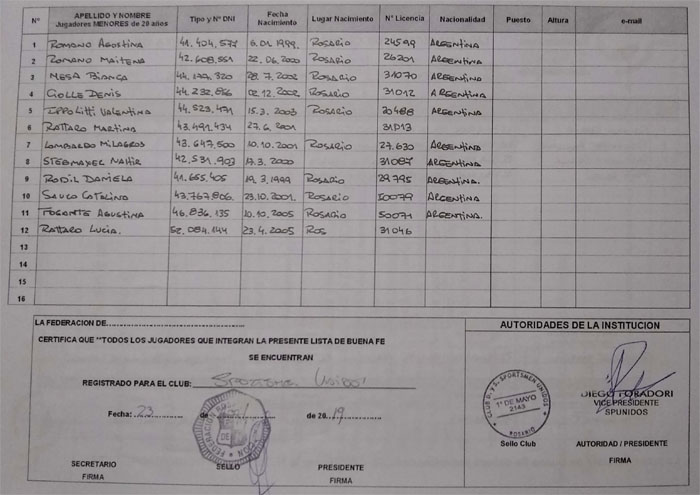 N° APELLIDO Y NOMBRE Jugadores MENORES de 20 años Tipo y N° DNI Fecha Nacimiento Lugar Nacimiento N° Licencia Nacionalidad Puesto Altura e-mail
1 ROMANO AGOSTINA 41.404.577 6.01.1999 ROSARIO 24599 ARGENTINA
2 ROMANO MAITENA 42.608.551 22.06.2000 ROSARIO 26201 ARGENTINA
3 MESA BIANCA 28.7.2002 ROSARIO 31070 ARGENTINA
4 GOLLE DENIS 44.232.866 02.12.2002 ROSARIO 31012 ARGENTINA
5 IPPOLITTI VALENTINA 44.523.471 15.3.2003 ROSARIO 20488 ARGENTINA
6 RATTARO MARTINA 43.491.434 27.6.2001 31013
7 LOMBARDO MILAGROS 43.647.500 10.10.2001 ROSARIO 27.630 ARGENTINA
8 NAHIR 42.531.903 17.3.2000 31087 ARGENTINA
9 RODIL DANIELA 41.655.405 19.3.1999 ROSARIO 29795 ARGENTINA.
10 SAUCO CATALINA 43.767.806. 23.10.2001. ROSARIO 50079 ARGENTINA
11 AGUSTINA 46.836.135 10.10.2005 ROSARIO 50071 ARGENTINA.
12 RATTARO LUCIA. 52.084.144 23.4.2005 ROS 31046
13
14
15
16
LA FEDERACION DE
CERTIFICA QUE "TODOS LOS JUGADORES QUE INTEGRAN LA PRESENTE LISTA DE BUENA FE
SE ENCUENTRAN
REGISTRADO PARA EL CLUB:
Fecha: 23 de de 2019
SECRETARIO SELLO PRESIDENTE
FIRMA FIRMA
AUTORIDADES DE LA INSTITUCION
CLUB D. y S. SPORTSMEN UNIDOS
1° DE MAYO
2143
ROSARIO
DIEGO FORADORI
VICEPRESIDENTE
SPUNIDOS
Sello Club AUTORIDAD / PRESIDENTE
FIRMA